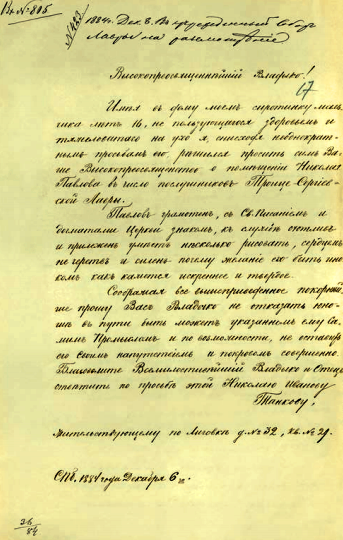 Вх. № 806
№ 423
1884 г. Дек. 8. В учрежденный Собор
Лавры на рассмотрение
Высокопреосвященнѣйшій Владыко!
17
Имѣя въ дому моемъ сиротинку маль-
чика лѣтъ 16, не пользующагося здоровьемъ и
тяжеловатаго на ухо я, снисходя неоднократ-
нымъ просьбамъ его, рѣшился просить симъ Ва-
ше Высокопреосвященство о помѣщеніи Николая
Павлова въ число послушниковъ Троице-Сергіев-
ской Лавры.
Павловъ грамотенъ, съ Св. Писаніемъ и
догматами Церкви знакомъ, къ службѣ охотливъ
и прилеженъ умѣетъ нѣсколько рисовать, сердцемъ
не черствъ и силенъ почему желаніе его быть ино-
комъ какъ кажется искренне и твердое.
Соображая все вышеприведенное покорнѣй-
ше прошу Васъ Владыко не отказать юно-
шѣ въ пути быть можетъ указанномъ ему Са-
мимъ Промысломъ и по возможности, не оставить
его своимъ напутствіемъ и покровомъ совершенно.
Благоволите Всемилостивѣйшій Владыко и Отецъ
отвѣтить по просьбѣ этой Николаю Иванову
Танкову,
жительствующему по Лиговкѣ д. № 32, кв. № 29.
СПб. 1884 года Декабря 6
26
84